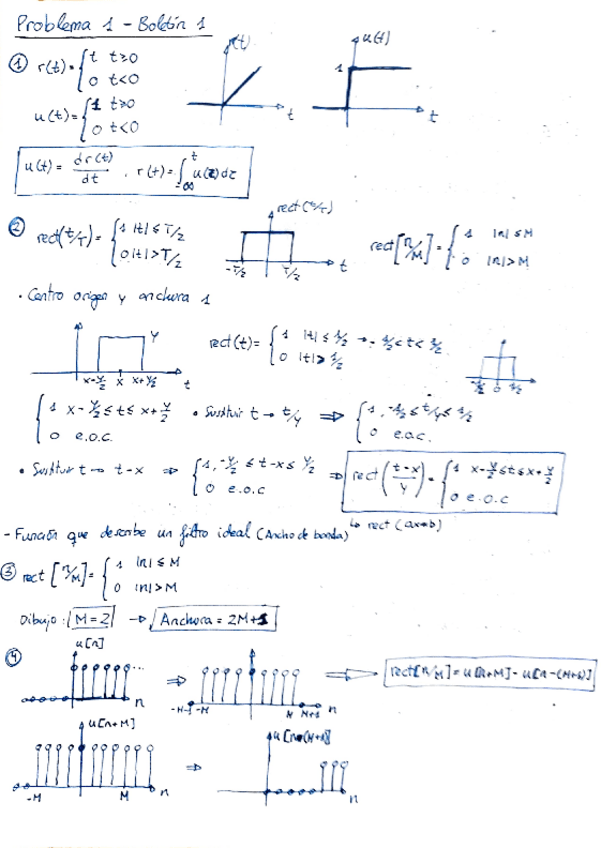 Problema 1 - Boletín 1
① r(t) = { t t≥0
0 t<0
r(t)
t
u(t)
1
t
u(t) = { 1 t≥0
0 t<0
u(t) = dr(t)/dt , r(t) = ∫_{-∞}^{t} u(τ)dτ
② rect(t/T) = { 1 |t| ≤ T/2
0 |t| > T/2
rect(t/T)
-T/2 T/2 t
rect[n/M] = { 1 |n| ≤ M
0 |n| > M
· Centro origen y anchura 1
Y
x-Y/2 x x+Y/2 t
rect(t) = { 1 |t| ≤ 1/2 → -1/2 < t < 1/2
0 |t| > 1/2
-1/2 0 1/2
{ 1 x-Y/2 ≤ t ≤ x+Y/2
0 e.o.c.
• Sustituir t → t/y ⇒ { 1, -1/2 ≤ t/y ≤ 1/2
0 e.o.c.
• Sustituir t → t-x ⇒ { 1, -Y/2 ≤ t-x ≤ Y/2
0 e.o.c
⇒ rect((t-x)/Y) = { 1 x-Y/2 ≤ t ≤ x+Y/2
0 e.o.c
- Función que describe un filtro ideal (Ancho de banda)
↳ rect (ax+b)
③ rect[n/M] = { 1 |n| ≤ M
0 |n| > M
Dibujo: M=2 → Anchura = 2M+1
④
u[n]
... n
⇒
-M-1 -M M M+1 n
⇒ rect[n/M] = u[n+M] - u[n-(M+1)]
u[n+M]
-M M n
⇒
u[n-(M+1)]
n